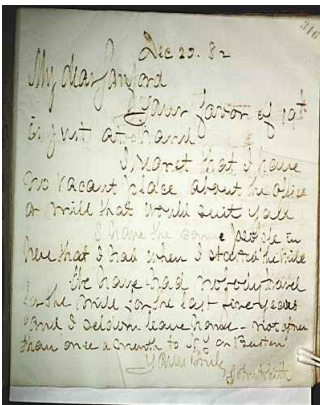 316
Dec 20. 82
My dear Sanford
Your favor of 19th
is just at hand
I regret that I have
no vacant place about the office
or mill that would suit you
I have the same people in
here that I had when I started the mill
We have had nobody travel
for the mill for the last five years
and I seldom leave home - not
than once a month to or Boston
Yours truly
John